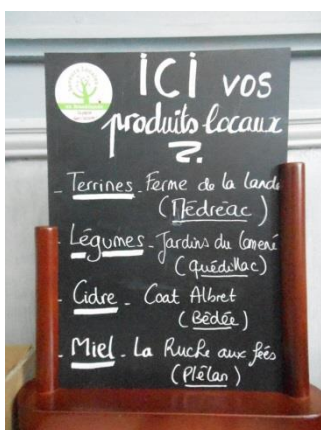 ICI VOS
produits locaux
?.
- Terrines - Ferme de la lande
(Médréac)
- Légumes - Jardins du Lomené
(quédillac)
- Cidre - Coat Albret
(Bédée)
- Miel - La Ruche aux fées
(Plélan)